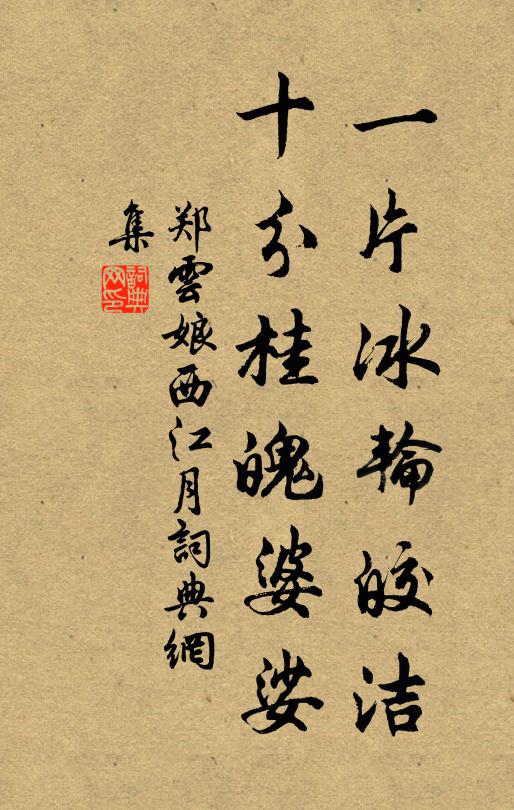 一片冰輪皎洁
十分桂魄婆娑
郑雲娘西江月詞典網
集
詞典网印